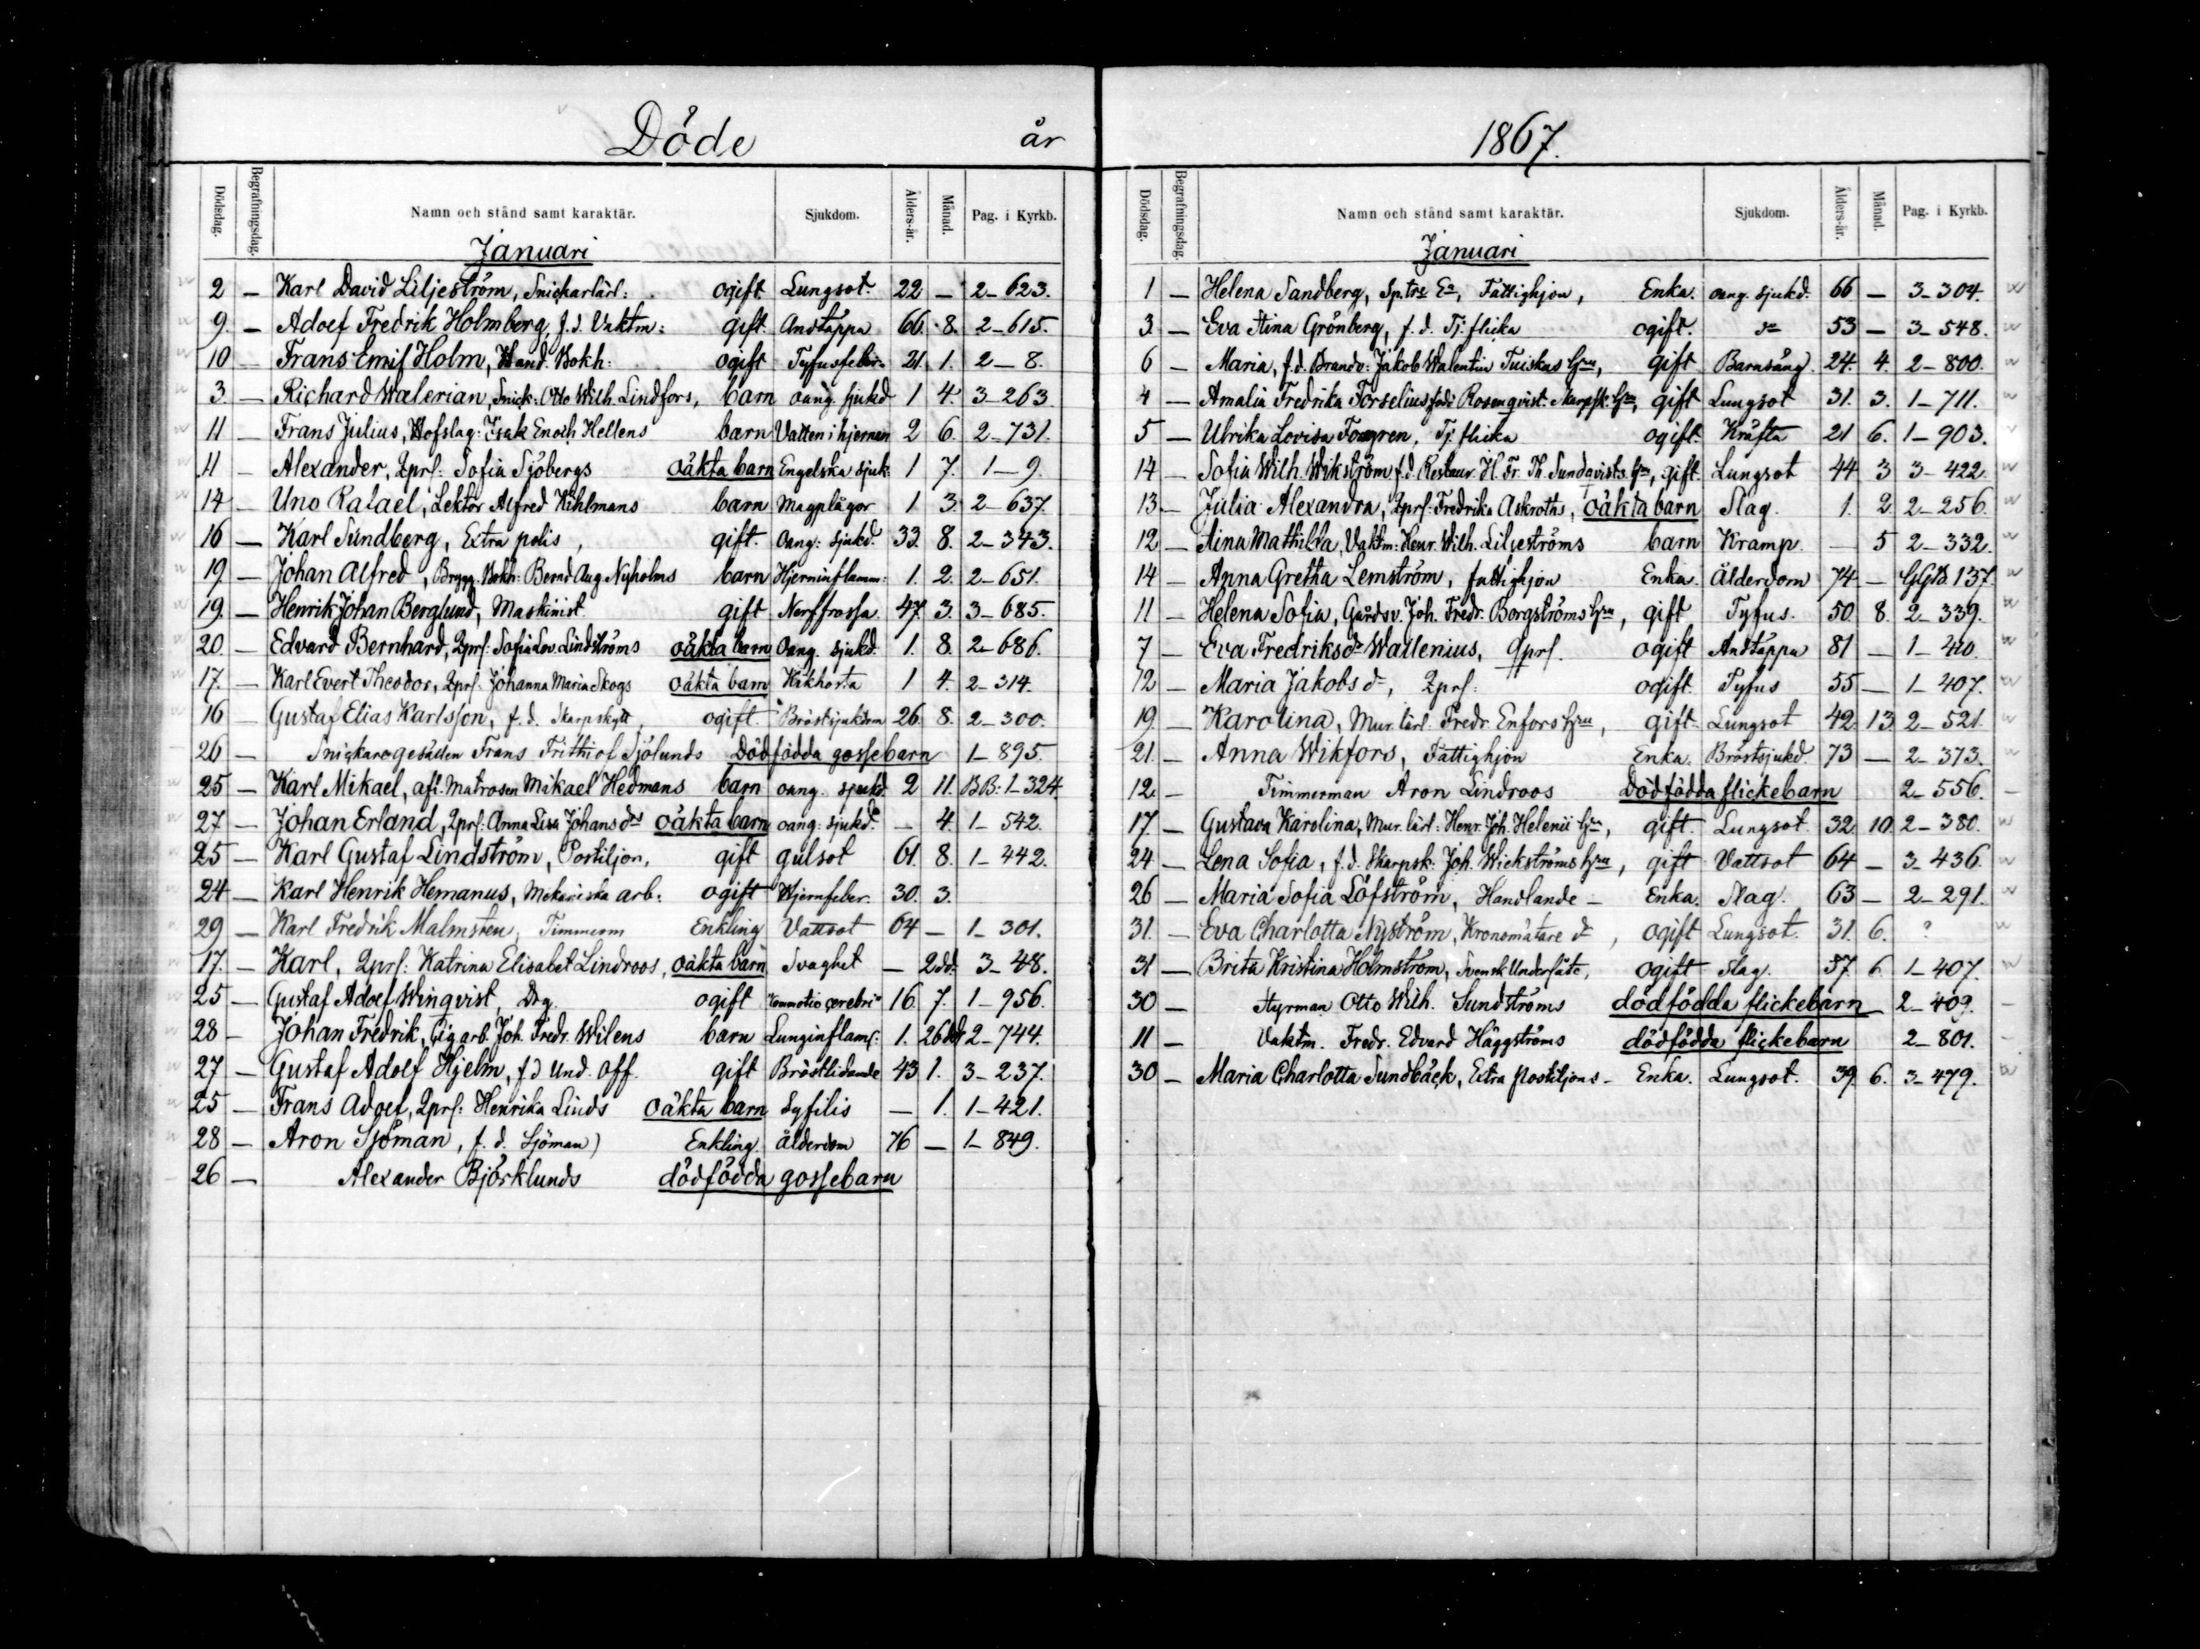 Döde år
Dödsdag. Begrafningsdag. Namn och stånd samt karaktär. Sjukdom. Ålders-år. Månad. Pag. i Kyrkb.
Januari
2 — Karl David Liljeström, Snickarlärl: ogift. Lungsot. 22 — 2–623.
9. — Adolf Fredrik Holmberg, f.d. Vaktm: gift. Andtäppa 66. 8. 2–615.
10 — Frans Emil Holm, Hand. Bokh: ogift Tyfusfeber 21. 1. 2–8.
3. — Richard Walerian, Snick: Otto Wilh. Lindfors, barn oang. sjukd 1 4 3–263
11 — Frans Julius, Hofslag: Isak Enoch Hellens barn Vatten i hjernan 2 6. 2–731.
11 — Alexander, Qprs: Sofia Sjöbergs oäkta barn Engelska sjuk. 1 7. 1–9.
14 — Uno Rafael, Lektor Alfred Kihlmans barn Magplågor 1 3 2–637.
16 — Karl Sundberg, Extra polis, gift. Oang: sjukd. 33. 8. 2–343.
19 — Johan Alfred, Brygg. Bokh: Bernd Aug. Nyholms barn Hjerninflamm: 1. 2. 2–651.
19. — Henrik Johan Berglund, Maskinist gift Nerffrossa. 47. 3. 3–685.
20. — Edvard Bernhard, Qprs: Sofia Lov. Lindströms oäkta barn Oang. sjukd. 1. 8. 2–686.
17. — Karl Evert Theodor, Qprs: Johanna Maria Skogs oäkta barn Kikhosta 1 4. 2–314.
16 — Gustaf Elias Karlsson, f. d. Skarpskytt, ogift. Bröstsjukdom 26. 8. 2–300.
26 — Snickaregesällen Frans Frithiof Sjölunds Dödfödda gossebarn 1–895.
25 — Karl Mikael, afl. Matrosen Mikael Hedmans barn oang. sjukd. 2 11. BB: 1–324.
27 — Johan Erland, Qprs: Anna Lisa Johansdrs oäkta barn oang: sjukd. — 4. 1–542.
25 — Karl Gustaf Lindström, Postiljon, gift gulsot 61. 8. 1–442.
24 — Karl Henrik Hemanus, Mekaniska arb: ogift Hjernfeber. 30. 3.
29 — Karl Fredrik Malmsten, Timmerm Enkling Vattsot 64 — 1–301.
17. — Karl, Qprs: Katrina Elisabet Lindroos, oäkta barn Svaghet — 2dd. 3–48.
25 — Gustaf Adolf Winqvist, Drg. ogift Kommotio cerebri 16. 7. 1–956.
28 — Johan Fredrik, Cig arb. Joh. Fredr. Wilens barn Lunginflams: 1. 26dd. 2–744.
27 — Gustaf Adolf Hjelm, f d Und. Off. gift Bröstlidande 43 1. 3–237.
25 — Frans Adolf, Qprs: Henrika Linds oäkta barn Syfilis — 1. 1–421.
28 — Aron Sjöman, f. d. Sjöman) Enkling. Ålderdom 76 — 1–849.
26 — Alexander Björklunds dödfödda gossebarn
1867.
Dödsdag. Begrafningsdag. Namn och stånd samt karaktär. Sjukdom. Ålders-år. Månad. Pag. i Kyrkb.
Januari
1 — Helena Sandberg, Fattighjon, Enka. oang. sjukd. 66 — 3–304.
3. — Eva Stina Grönberg, f. d. Tj. flicka ogift. do 53 — 3–548.
6 — Maria, f.d. Brandv: Jakob Walentin Tuiskus hru, gift Barnsäng. 24. 4. 2–800.
4 — Amalia Fredrika Forselius född Rosenqvist. Skarpsk. hru, gift Lungsot 31. 3. 1–711.
5 — Ulrika Lovisa Forgren, Tj. flicka ogift. Kräfta 21 6. 1–903.
14 — Sofia Wilh. Wikström f.d. Restaur. H. Fr. Th. Sundqvists. hru, gift. Lungsot 44 3 3–422.
13 — Julia Alexandra, Qprs: Fredrika Askroths, oäkta barn Slag. 1. 2. 2–256.
12 — Aina Mathilda, Vaktm: Henr. Wilh. Liljeströms barn Kramp. — 5 2–332.
14 — Anna Gretha Lemström, fattighjon Enka. Ålderdom 74 — 137.
11 — Helena Sofia, Gårdsv. Joh. Fredr. Borgströms hru, gift Tyfus. 50. 8. 2–339.
7 — Eva Fredriksdr Wallenius, Qprs. ogift Andtäppa 81 — 1–420.
12 — Maria Jakobsdr, Qprs: ogift. Tyfus 55 — 1–407.
19. — Karolina, Mur. lärl. Fredr. Enfors hru, gift. Lungsot 42. 13 2–521.
21. — Anna Wikfors, Fattighjon Enka. Bröstsjukd. 73 — 2–373.
12. — Timmerman Aron Lindroos Dödfödda flickebarn 2–556.
17 — Gustava Karolina, Mur. lärl: Henr. Joh. Helenii hru, gift. Lungsot. 32. 10. 2–380.
24 — Lena Sofia, f.d. Skarpsk. Joh. Wickströms hru, gift Vattsot 64 — 3–436.
26 — Maria Sofia Löfström, Handlande — Enka. Slag. 63 — 2–291.
31. — Eva Charlotta Nyström, Kronomätare dr, ogift Lungsot. 31. 6. ?
31 — Brita Kristina Holmström, Svensk Undersåte, ogift Slag. 37. 6. 1–407.
30 — Styrman Otto Wilh. Sundströms dödfödda flickebarn 2–409.
11 — Vaktm. Fredr. Edvard Häggströms dödfödda flickebarn 2–801.
30 — Maria Charlotta Sundbäck, Extra postiljons – Enka. Lungsot. 39. 6. 3–479.